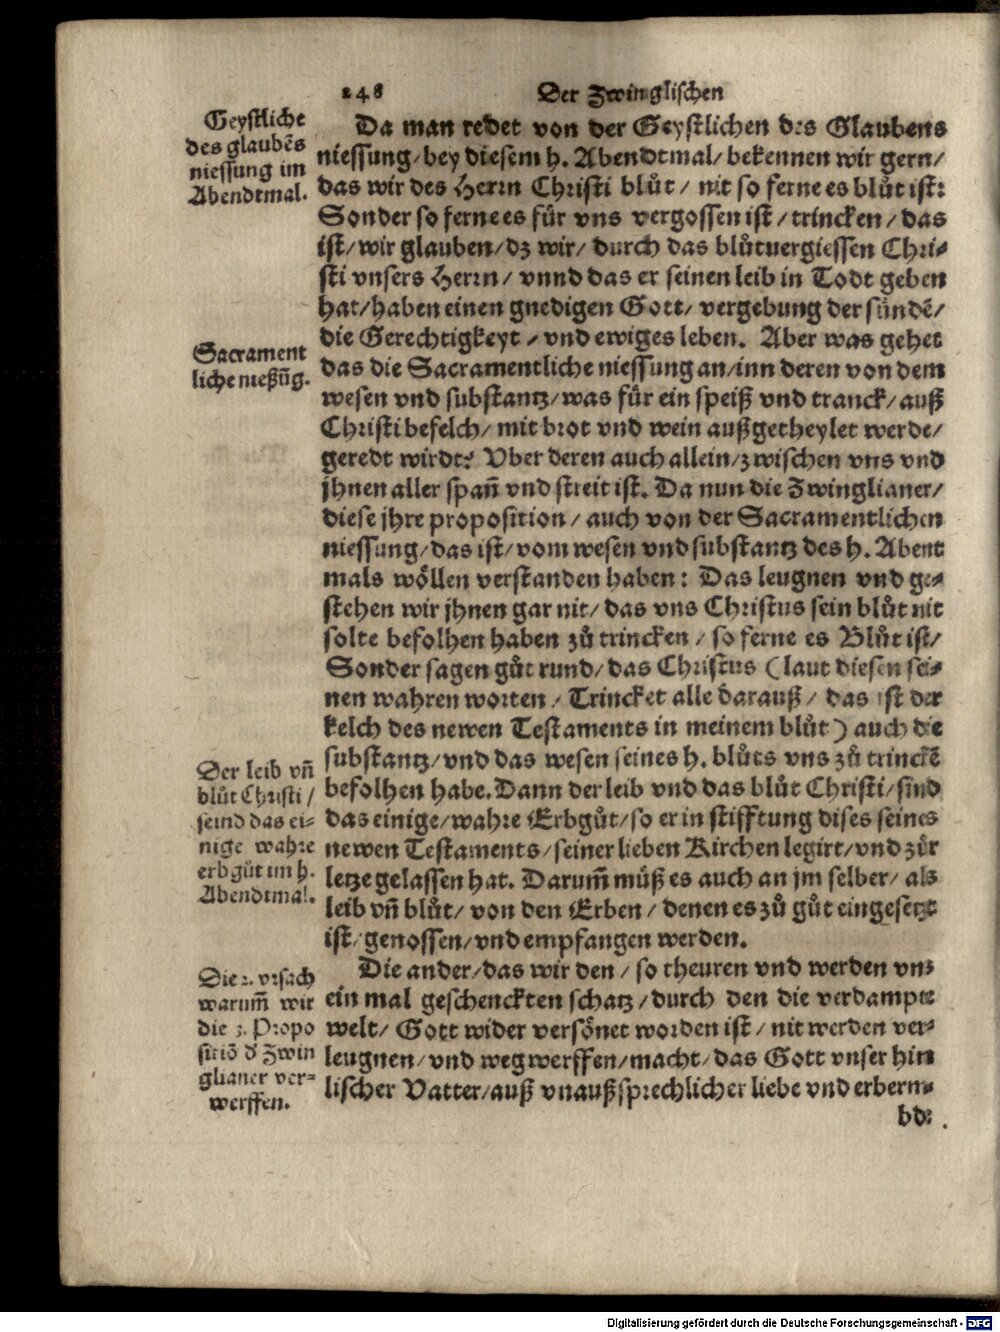 248 Der Zwinglischen
Geystliche
des glaubẽs
niessung im
Abendtmal.
Da man redet von der Geystlichen des Glaubens
niessung/ bey diesem h. Abendtmal/ bekennen wir gern/
das wir des Herrn Christi blůt/ nit so ferne es blůt ist:
Sonder so ferne es für vns vergossen ist/ trincken/ das
ist/ wir glauben/ dz wir/ durch das blůtuergiessen Chri⸗
sti vnsers Herrn/ vnnd das er seinen leib in Todt geben
hat/ haben einen gnedigen Gott/ vergebung der sündẽ/
die Gerechtigkeyt/ vnd ewiges leben. Aber was gehet
Sacrament
liche nießũg.
das die Sacramentliche niessung an/ inn deren von dem
wesen vnd substantz/ was für ein speiß vnd tranck/ auß
Christi befelch/ mit brot vnd wein außgetheylet werde/
geredt wirdt? Vber deren auch allein/ zwischen vns vnd
jhnen aller spañ vnd streit ist. Da nun die Zwinglianer/
diese jhre proposition/ auch von der Sacramentlichen
niessung/ das ist/ vom wesen vnd substantz des h. Abent
mals wöllen verstanden haben: Das leugnen vnd ge⸗
stehen wir jhnen gar nit/ das vns Christus sein blůt nit
solte befolhen haben zů trincken/ so ferne es Blůt ist/
Sonder sagen gůt rund/ das Christus (laut diesen sei⸗
nen wahren worten/ Trincket alle darauß/ das ist der
kelch des newen Testaments in meinem blůt) auch die
substantz/ vnd das wesen seines h. blůts vns zů trinckẽ
befolhen habe. Dann der leib vnd das blůt Christi/ sind
das einige/ wahre Erbgůt/ so er in stifftung dises seines
newen Testaments/ seiner lieben Kirchen legirt/ vnd zůr
letze gelassen hat. Darum̃ můß es auch an jm selber/ als
leib vñ blůt/ von den Erben/ denen es zů gůt eingesetzt
ist/ genossen/ vnd empfangen werden.
Der leib vñ
blůt Christi/
seind das ei⸗
nige wahre
erbgůt im h.
Abendtmal.
Die ander/ das wir den/ so theuren vnd werden vns
ein mal geschenckten schatz/ durch den die verdampte
welt/ Gott wider versönet worden ist/ nit werden ver⸗
leugnen/ vnd wegwerffen/ macht/ das Gott vnser him
lischer Vatter/ auß vnaußsprechlicher liebe vnd erberm⸗
Die 2. vrsach
warum̃ wir
die 3. Propo
sitiõ d' Zwin
glianer ver⸗
werffen.
bde
Digitalisierung gefördert durch die Deutsche Forschungsgemeinschaft - DFG